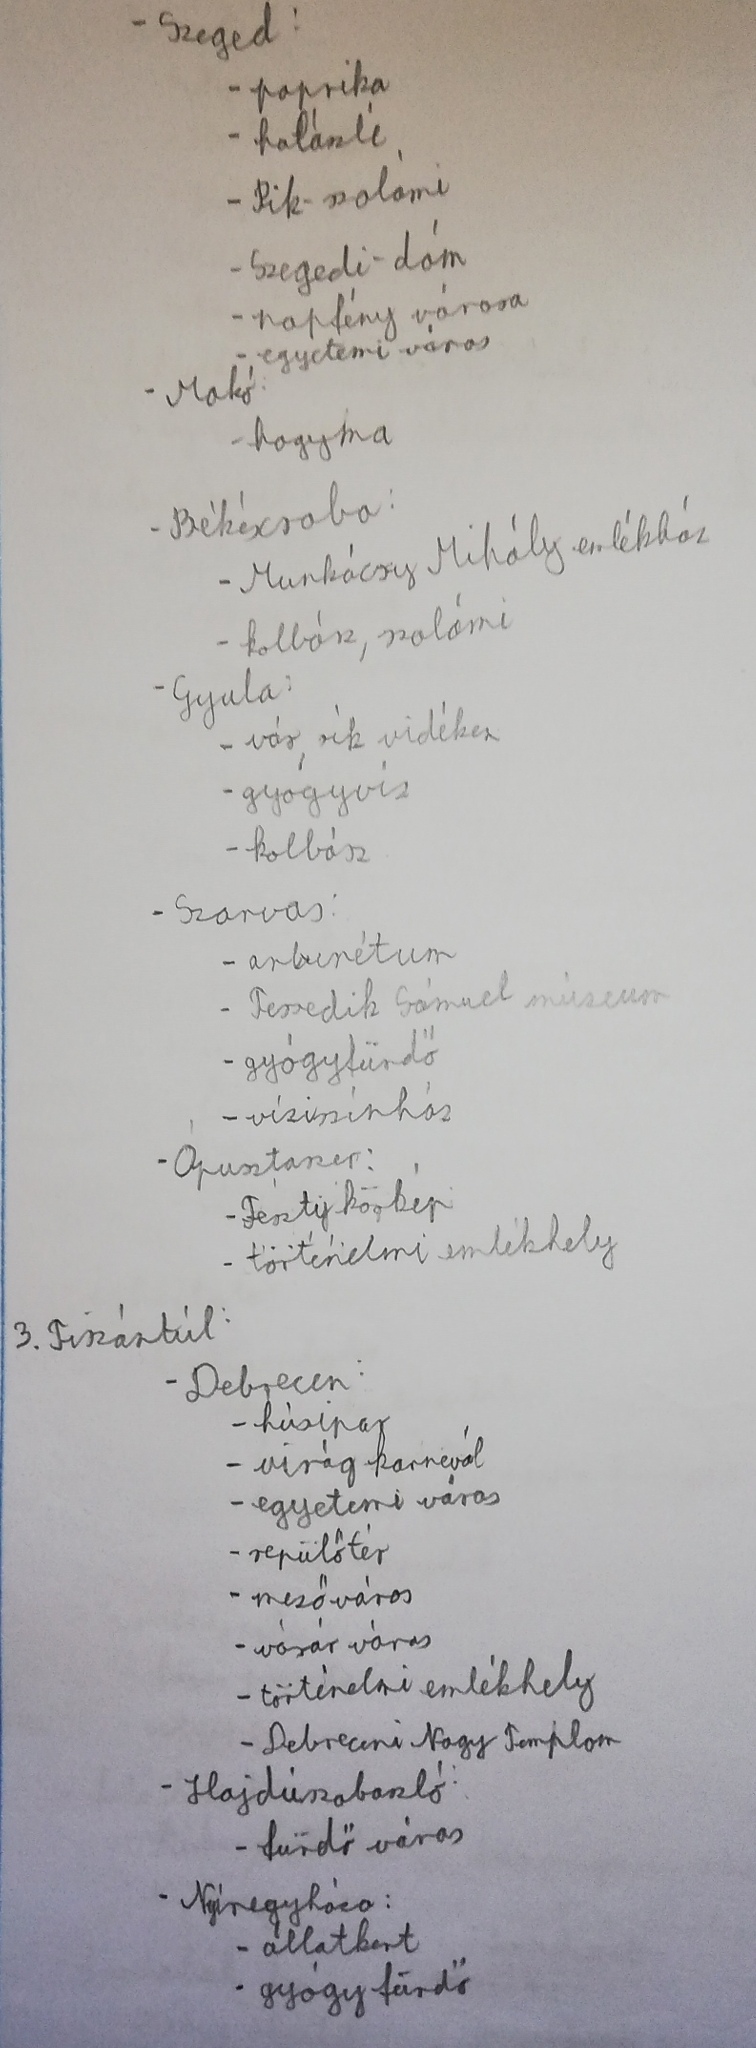 - Szeged:
- paprika
- halászlé
- Pik-szalámi
- Szegedi-dóm
- napfény városa
- egyetemi város
- Makó:
- hagyma
- Békéscsaba:
- Munkácsy Mihály emlékház
- kolbász, szalámi
- Gyula:
- vár, sík vidéken
- gyógyvíz
- kolbász
- Szarvas:
- arburétum
- Tessedik Sámuel múzeum
- gyógyfürdő
- víziszínház
- Ópusztaszer:
- Feszty körkép
- történelmi emlékhely
3. Tiszántúl:
- Debrecen:
- húsipar
- virág karnevál
- egyetemi város
- repülőtér
- mezőváros
- vásár város
- történelmi emlékhely
- Debreceni Nagy Templom
- Hajdúszoboszló:
- fürdő város
- Nyíregyháza:
- állatkert
- gyógy fürdő